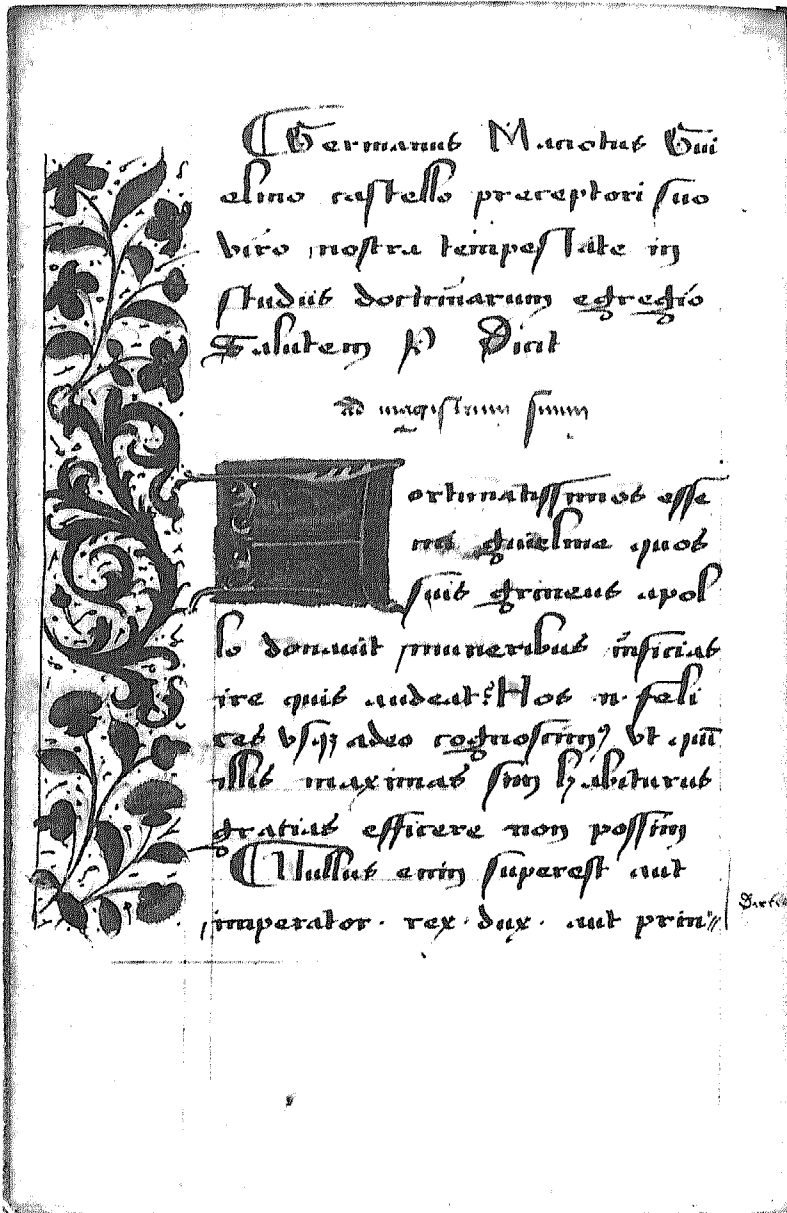 Germanus Macrotus Gui
elmo castello preceptori suo
viro nostra tempestate in
studiis doctrinarum egregio
Salutem P Dicit
ad magistrum suum
Fortunatissimos esse
mi guielme quos
suis grineus apol
lo donauit muneribus inficias
ire quis audeat? Hos n. feli
ces vsq; adeo cognoscimꝰ vt quī
illis maximas sim habiturus
gratias efficere non possim
Nullus enim superest aut
imperator. rex. dux. aut prin〃